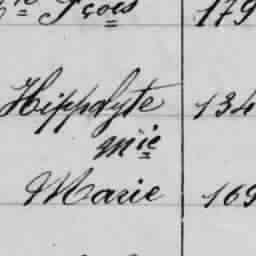 Fçois 179
Hippolyte 134
Mie
Marie 169